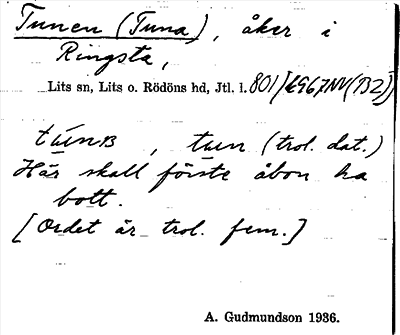 Tunen (Tuna), åker i
Ringsta,
Lits sn, Lits o. Rödöns hd, Jtl. l. 801/
túnʙ, tun (trol. dat.)
Här skall förste åbon ha
bott.
[Ordet är trol. fem.]
A. Gudmundson 1936.